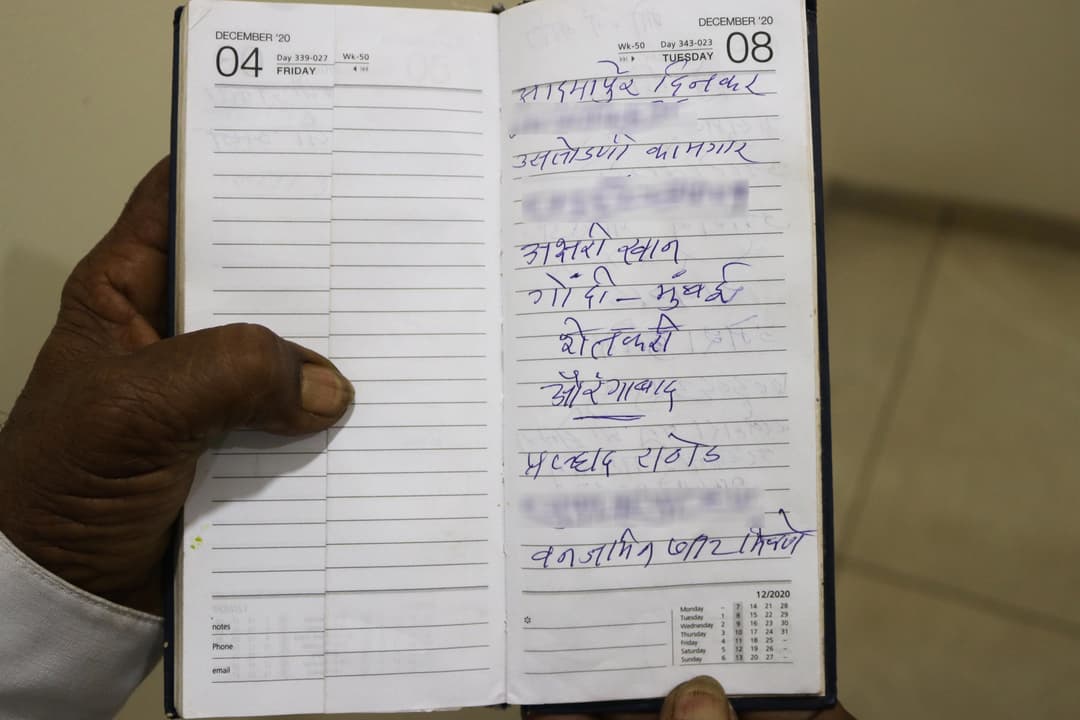 DECEMBER '20
04
Day 339-027
FRIDAY
Wk-50
DECEMBER '20
Wk-50
Day 343-023
TUESDAY
08
दिनकर
उसतोडणी कामगार
खान
गोंदी – मुंबई
शेतकरी
औरंगाबाद
प्रल्हाद राठोड
वनजमिन
notes
Phone
email
12/2020
Monday – 7 14 21 28
Tuesday 1 8 15 22 29
Wednesday 2 9 16 23 30
Thursday 3 10 17 24 31
Friday 4 11 18 25 –
Saturday 5 12 19 26 –
Sunday 6 13 20 27 –